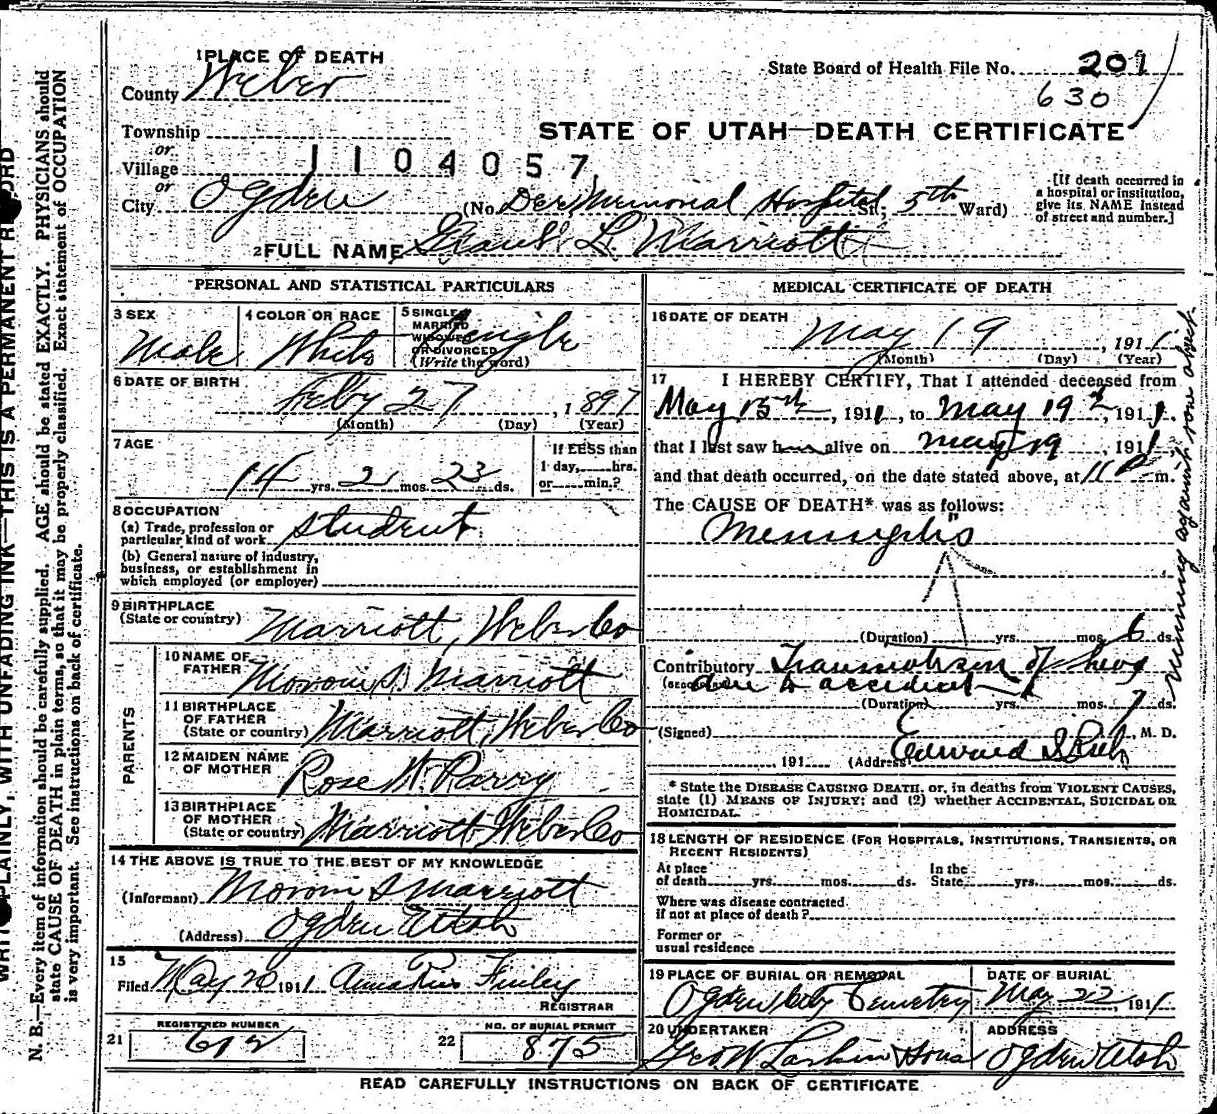 1 PLACE OF DEATH
County Weber
State Board of Health File No. 201
630
Township
or
Village
1104057
STATE OF UTAH—DEATH CERTIFICATE
or
City Ogden (No. Dee Memorial Hospital St.; 5th Ward)
[If death occurred in
a hospital or institution,
give its NAME instead
of street and number.]
2 FULL NAME L. Marriott
PERSONAL AND STATISTICAL PARTICULARS
3 SEX
Male
4 COLOR OR RACE
White
5 SINGLE
MARRIED
WIDOWED
OR DIVORCED
(Write the word)
Single
6 DATE OF BIRTH
Feby 27, 1897
(Month) (Day) (Year)
7 AGE
14 yrs. 2 mos. 23 ds.
If LESS than
1 day, hrs.
or min.?
8 OCCUPATION
(a) Trade, profession or
particular kind of work student
(b) General nature of industry,
business, or establishment in
which employed (or employer)
9 BIRTHPLACE
(State or country) Marriott, Weber Co
PARENTS
10 NAME OF
FATHER Moroni S. Marriott
11 BIRTHPLACE
OF FATHER
(State or country) Marriott, Weber Co
12 MAIDEN NAME
OF MOTHER Rose W. Parry
13 BIRTHPLACE
OF MOTHER
(State or country) Marriott Weber Co
14 THE ABOVE IS TRUE TO THE BEST OF MY KNOWLEDGE
(Informant) Moroni S Marriott
(Address) Ogden Utah
15
Filed May 20 1911 Finley
REGISTRAR
21 REGISTERED NUMBER
612
22 NO. OF BURIAL PERMIT
875
MEDICAL CERTIFICATE OF DEATH
16 DATE OF DEATH
May 19, 1911
(Month) (Day) (Year)
17 I HEREBY CERTIFY, That I attended deceased from
May 15th, 1911, to May 19, 1911.
that I last saw him alive on May 19, 1911,
and that death occurred, on the date stated above, at 11 P m.
The CAUSE OF DEATH* was as follows:
Meningitis
(Duration) yrs. mos. 6 ds.
Contributory Traumatism of
(SECONDARY) due to accident
(Duration) yrs. mos. 7 ds.
running against
(Signed) M. D.
Edward I
191 (Address)
* State the DISEASE CAUSING DEATH, or, in deaths from VIOLENT CAUSES,
state (1) MEANS OF INJURY; and (2) whether ACCIDENTAL, SUICIDAL OR
HOMICIDAL.
18 LENGTH OF RESIDENCE (FOR HOSPITALS, INSTITUTIONS, TRANSIENTS, OR
RECENT RESIDENTS)
At place
of death yrs. mos. ds.
In the
State yrs. mos. ds.
Where was disease contracted
if not at place of death?
Former or
usual residence
19 PLACE OF BURIAL OR REMOVAL
Ogden City Cemetery
DATE OF BURIAL
May 22, 1911
20 UNDERTAKER
Geo. W Larkin & Sons
ADDRESS
Ogden Utah
READ CAREFULLY INSTRUCTIONS ON BACK OF CERTIFICATE
PLAINLY, WITH UNFADING INK—THIS IS A PERMANENT
N. B.—Every item of information should be carefully supplied. AGE should be stated EXACTLY. PHYSICIANS should
state CAUSE OF DEATH in plain terms, so that it may be properly classified. Exact statement of OCCUPATION
is very important. See instructions on back of certificate.